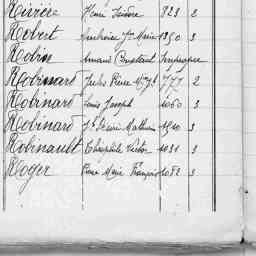 Rivière Henri Isidore 823 2
Robert Ambroise Jn Marie 1350 3
Robin Armand Constant Impropre
Robinard Jules Pierre Mie Jh 777 2
Robinard Louis Joseph 1060 3
Robinard Jh Désiré Mathurin 1510 3
Robinault Théophile Victor 1031 3
Roger Pierre Marie François 1082 3